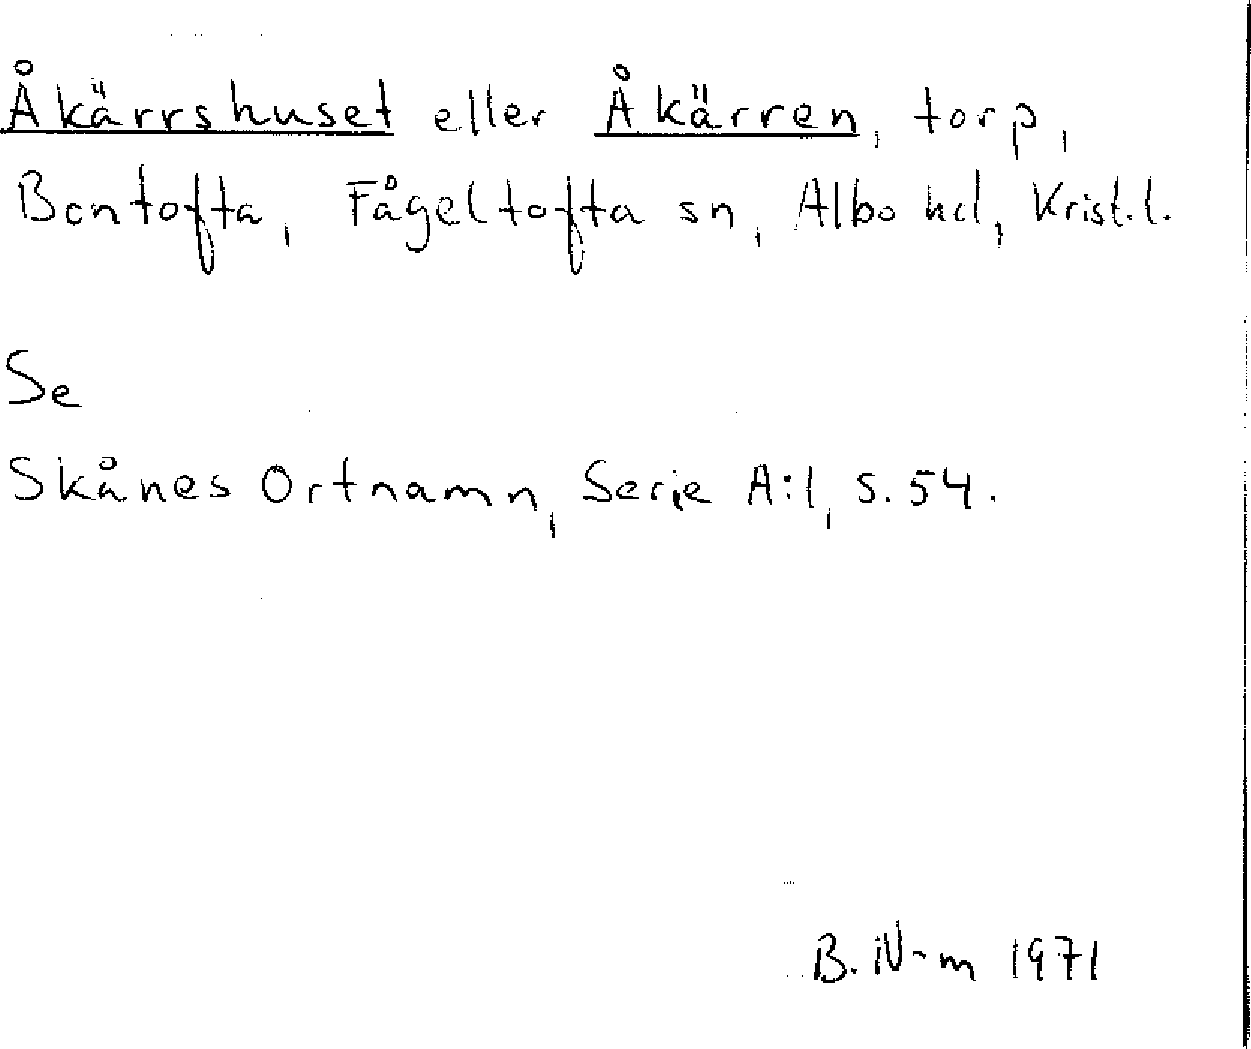 Åkärrshuset eller Åkärren, torp,
Bontofta, Fågeltofta sn, Albo hd, Krist.l.
Se
Skånes Ortnamn, Serie A:1, s. 54.
B. N-m 1971